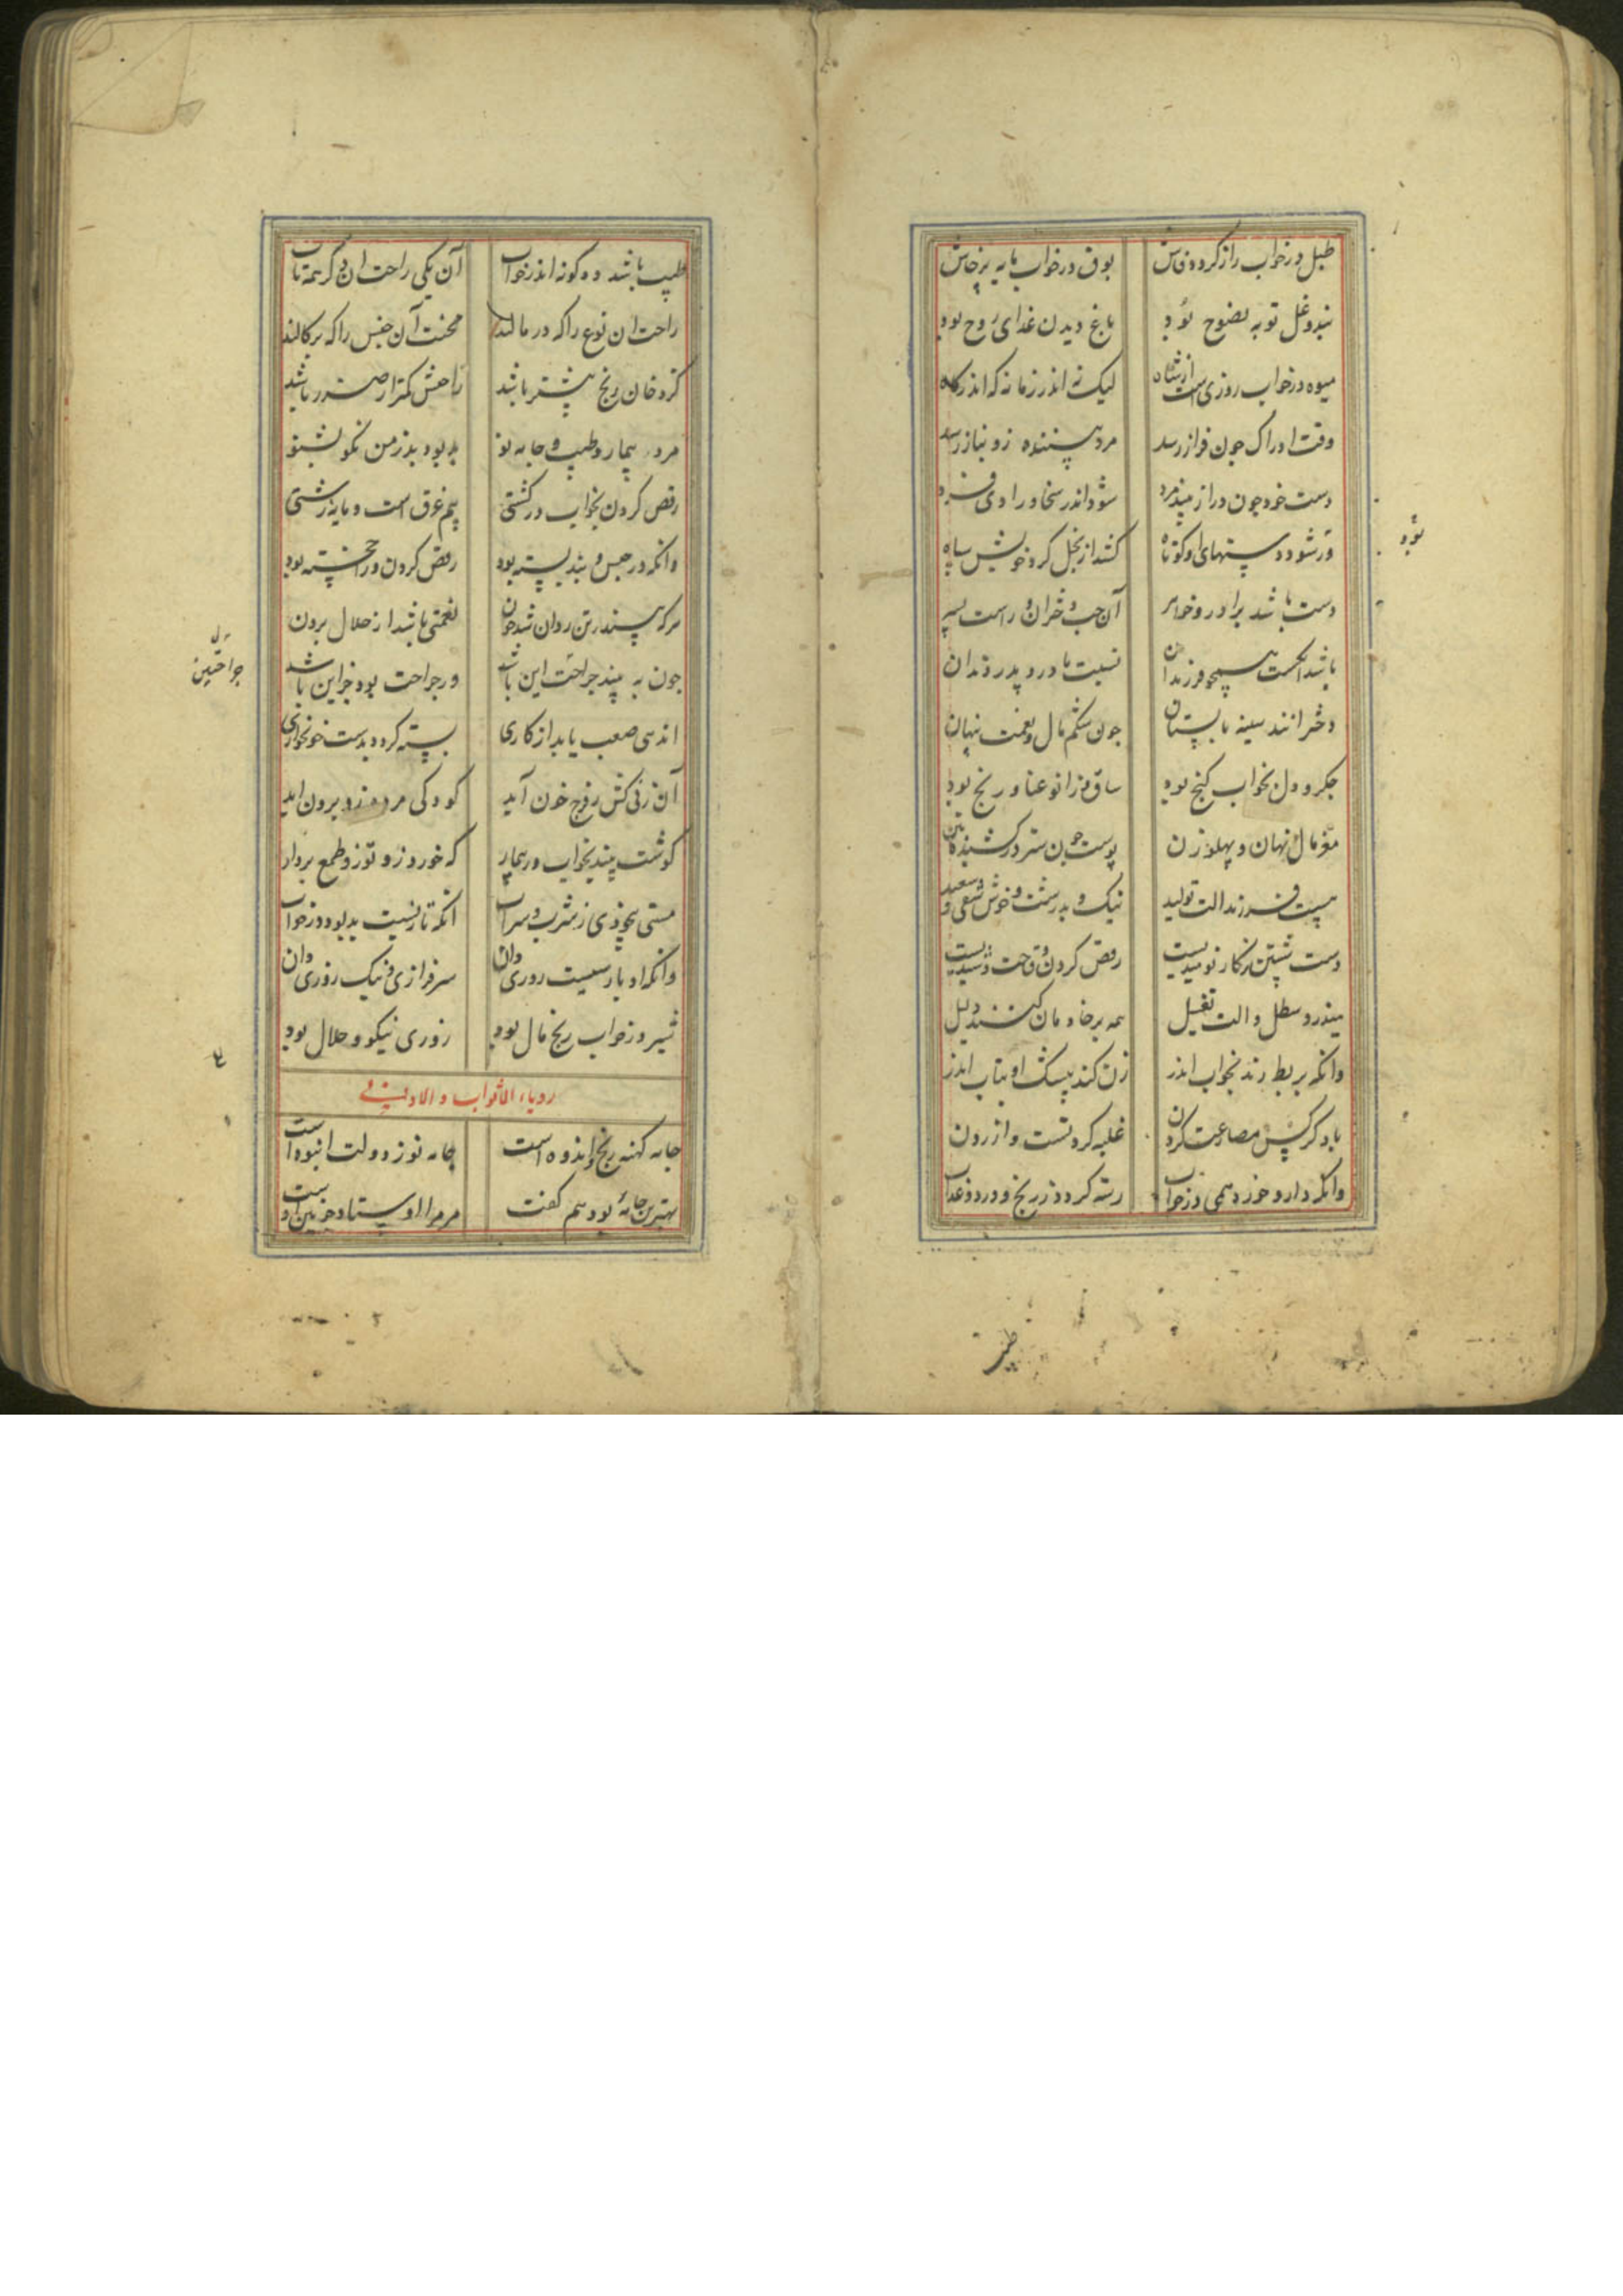 طبل در خواب راز کردن فاش بوق در خواب مایه پرخاش
بند و غل توبه نصوح بود باغ دیدن غذای روح بود
میوه در خواب روزی است از شاه لیک نه اندر زمانه که اندر گاه
وقت ادراک چون فراز رسد مرد بیننده زو نیاز رسد
دست خود چون دراز بیند مرد شود اندر سخا و رادی فرد
ور شود دستهای او کوتاه کشد از بخل گرد خویش سپاه
دست باشد برادر و خواهر آن چپ دختران و راست پسر
باشد انگشت همچو فرزندان نسبت مادر و پدر دندان
دخترانند سینه با پستان چون شکم مال و نعمت پنهان
جگر و دل بخواب گنج بود ساق و زانو عنا و رنج بود
مغز مال نهان و پهلو زن پوست چون ستر در کشنده بتن
هست فرزند الت تولید نیک و بد زشت و خوش شقی و سعید
دست شستن ز کار نومیدیست رقص کردن وقاحت و شیدیست
میزر و سطل و الت تغسیل همه بر خادمان کنند دلیل
وانکه بربط زند بخواب اندر زن کند بیشک او بتاب اندر
با دگر کس مصارعت کردن غلبه کردنست و ازردن
وانکه دارو خورد همی در خواب رسته گردد ز رنج و درد و عذاب
بود
طبیب
طبیب باشد دو گونه اندر خواب آن یکی راحت ان دگر همه تاب
راحت ان نوع را که در مالند محنت آن جنس را که برکالند
گرد خان رنج بیشتر باشد راحتش کمتر از ضرر باشد
مرد بیمار و طیب و جامه نو بد بود بد ز من نکو بشنو
رقص کردن بخواب در کشتی بیم غرق است و مایه زشتی
وانکه در حبس و بند بسته بود رقص کردن ورا خجسته بود
هرکه بیند ز تن روان شد خون نعمتی باشد از حلال برون
چون به بیند جراحت این باشد ور جراحت بود جز این باشد
اندهی صعب یابد از کاری بسته گردد بدست خونخواری
آن زنی کش ز فرج خون آید کودکی مرده زو برون اید
گوشت بیند بخواب در بیمار که خورد زو تو زو طمع بردار
مستی بیخودی ز شرب و سراب انکه تازیست بد بود در خواب
وانکه او پارسیست روزی دان سرفرازی و نیک روزی دان
شیر در خواب رنج مال بود روزی نیکو و حلال بود
رویاء الاثواب و الاوانی
جامه کهنه رنج و اندوه است جامه نو ز دولت انبوه است
بهترین جامه بود هم گفت مر مرا اوستاد